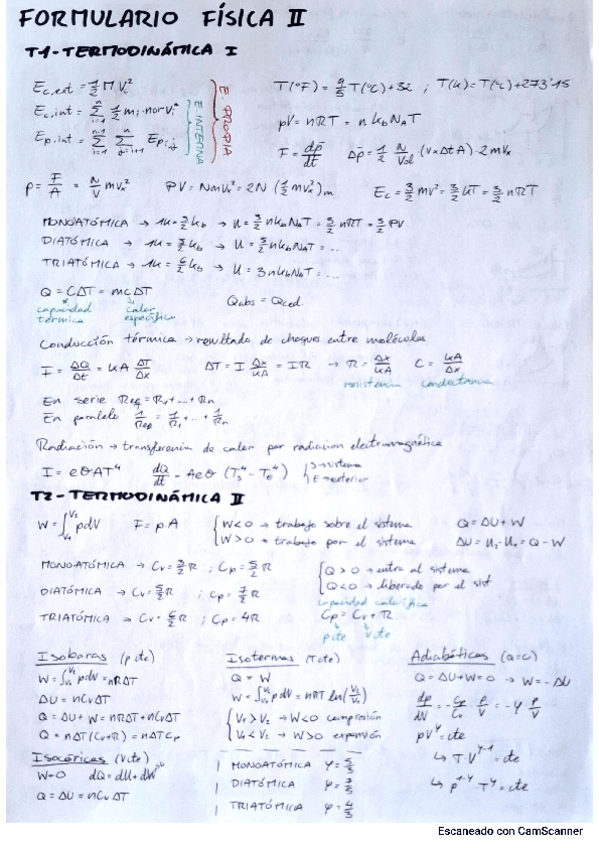 FORMULARIO FÍSICA II
T1-TERMODINÁMICA I
Ec,ext = 1/2 M V²
Ec,int = Σ 1/2 mi · Vi²
Ep,int = Σ Σ Ep i,j
E INTERNA
E PROPIA
T(°F) = 9/5 T(°C)+32 ; T(K) = T(°C)+273'15
pV = nRT = n kb NA T
F = dp/dt Δp = 1/2 N/Vol (Vx Δt A) · 2mVx
p = F/A = N/V mVx² PV = NmVx² = 2N (1/2 mVx²)m Ec = 3/2 mv² = 3/2 KT = 3/2 nRT
MONOATÓMICA → 1u = 3/2 kb → U = 3/2 n kb NA T = 3/2 nRT = 3/2 PV
DIATÓMICA → U = 5/2 n kb NA T = ...
TRIATÓMICA → 1u = 6/2 kb → U = 3 n kb NA T = ...
Q = CΔT = mcΔT
capacidad térmica calor específico
Qabs = Qced.
Conducción térmica → resultado de choques entre moléculas
I = ΔQ/Δt = kA ΔT/Δx ΔT = I Δx/kA = IR → R = Δx/kA C = kA/Δx
resistencia conductancia
En serie Req = R1 + ... + Rn
En paralelo 1/Rep = 1/R1 + ... + 1/Rn
Radiación → transferencia de calor por radiacion electromagnética
I = eθAT⁴ dQ/dt = Aeθ (Ts⁴ - Te⁴) S→sistema
E→exterior
T2-TERMODINÁMICA II
W = ∫ pdV F = p A
W<0 → trabajo sobre el sistema
W>0 → trabajo por el sistema
Q = ΔU + W
ΔU = U2 - U1 = Q - W
MONOATÓMICA → Cv = 3/2 R ; Cp = 5/2 R
DIATÓMICA → Cv = 5/2 R ; Cp = 7/2 R
TRIATÓMICA → Cv = 6/2 R ; Cp = 4R
Q > 0 → entra al sistema
Q < 0 → liberado por el sist
capacidad calorífica
Cp = Cv + R
p cte V cte
Isobaras (p cte)
W = ∫ pdV = nRΔT
ΔU = nCvΔT
Q = ΔU + W = nRΔT + nCvΔT
Q = nΔT(Cv+R) = nΔTCp
Isocóricas (V cte)
W=0 dQ = dU + dW
Q = ΔU = nCvΔT
Isotermas (T cte)
Q = W
W = ∫ pdV = nRT ln(V2/V1)
V1 > V2 → W<0 compresión
V1 < V2 → W>0 expansión
MONOATÓMICA γ = 5/3
DIATÓMICA γ = 7/5
TRIATÓMICA γ = 4/3
Adiabáticas (Q=0)
Q = ΔU + W = 0 → W = -ΔU
dp/dV = -Cp/Cv · p/V = -γ p/V
pV^γ = cte
↳ T·V^γ-1 = cte
↳ p^1-γ · T^γ = cte
Escaneado con CamScanner